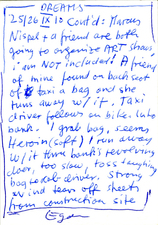 DREAMS
25/26 IX 10 Cont'd: Marcus
Nispel + a friend are both
going to organize ART shows,
i am NOT included! A friend
of mine found on back seat
of taxi a bag and she
runs away w/it. Taxi
driver follows on bike. Into
bank. I grab bag, seems
Heroin (soft) I run away
w/it thru bank's revolving
door, too slow, toss
bag to cab driver. Strong
wind tears off sheets
from construction site!